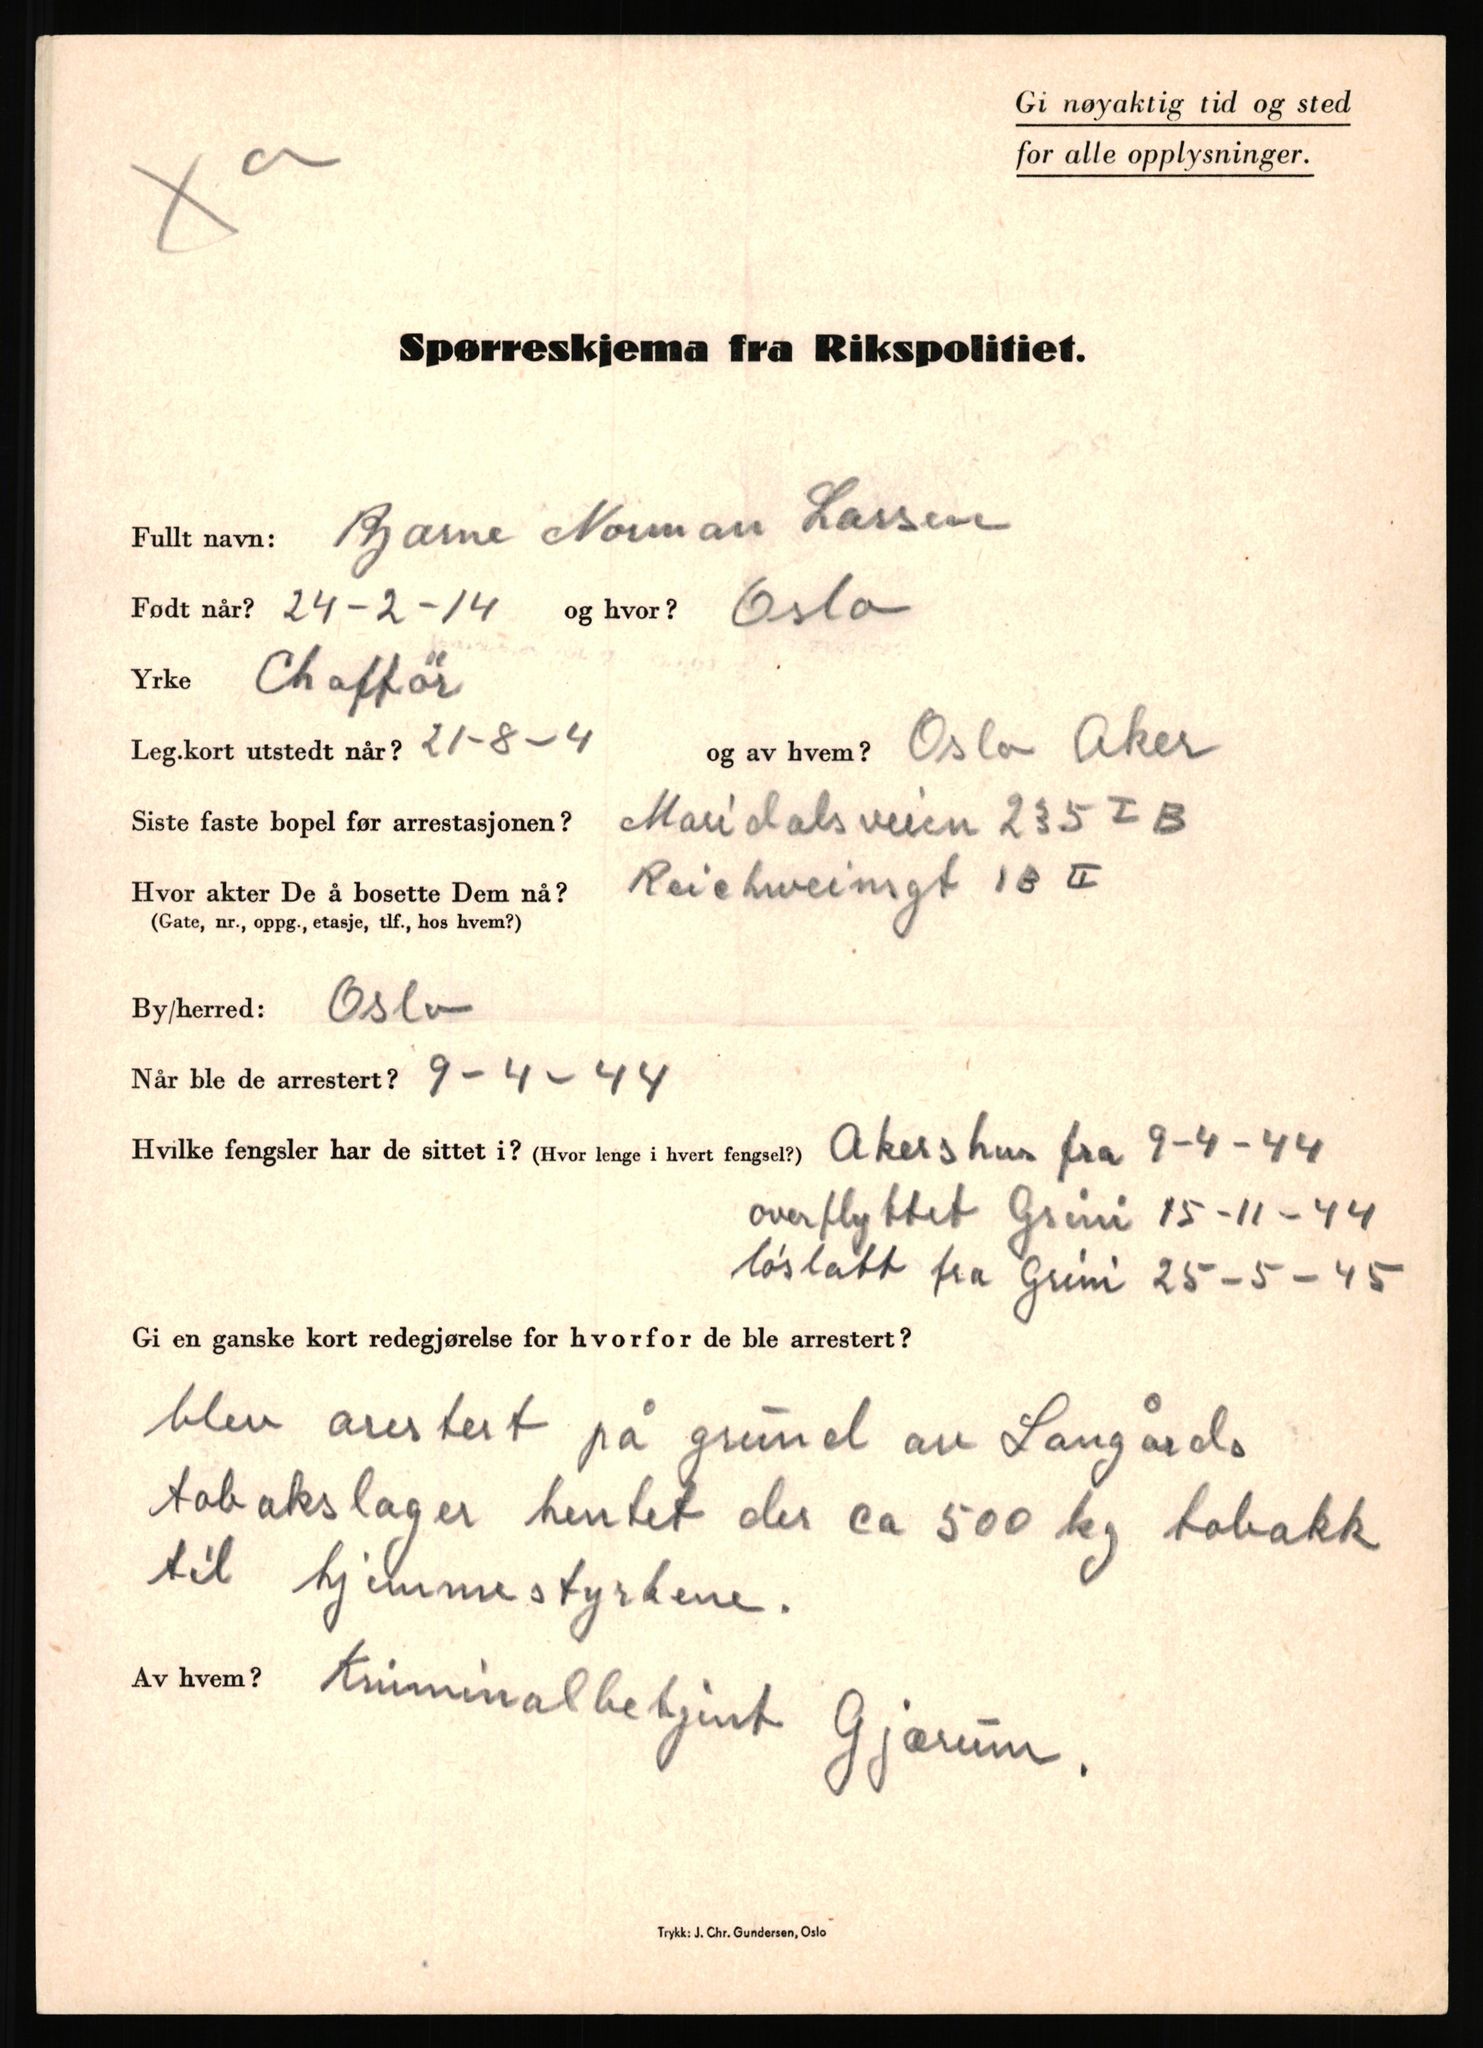 Gi nøyaktig tid og sted
for alle opplysninger.
Spørreskjema fra Rikspolitiet.
Fullt navn: Bjarne Norman Larsen
Født når? 24-2-14 og hvor? Oslo
Yrke Chafför
Leg.kort utstedt når? 21-8-4 og av hvem? Oslo Aker
Siste faste bopel før arrestasjonen? Maridalsveien 235 I B
Hvor akter De å bosette Dem nå? Reichweinsgt 1B II
(Gate, nr., oppg., etasje, tlf., hos hvem?)
By/herred: Oslo
Når ble de arrestert? 9-4-44
Hvilke fengsler har de sittet i? (Hvor lenge i hvert fengsel?) Akershus fra 9-4-44
overflyttet Grini 15-11-44
löslatt fra Grini 25-5-45
Gi en ganske kort redegjørelse for hvorfor de ble arrestert?
blev arestert på grund av Langårds
tobakslager hentet der ca 500 kg tobakk
til hjemmestyrkene.
Av hvem? Kriminalbetjent Gjærum.
Trykk: J. Chr. Gundersen, Oslo